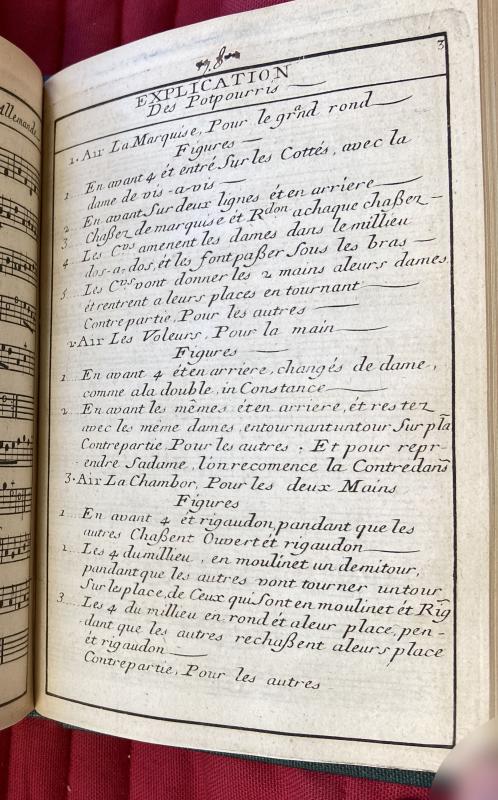 Allemande
78
3
EXPLICATION
Des Potpourris
1. Air La Marquise, Pour le grand rond
Figures
1 En avant 4 ét entré Sur les Cottés, avec la
dame de vis-a-vis
2 En avant Sur deux lignes ét en arriere
3 Chaßez de marquise ét Rdon a chaque chaßez
4 Les Cers amenent les dames dans le millieu
dos-a-dos, ét les font paßer Sous les bras
5 Les Cers vont donner les 2 mains aleurs dames
ét rentrent a leurs places en tournant
Contre partie, Pour les autres
2 Air Les Voleurs, Pour la main
Figures
1 En avant 4 ét en arriere, changés de dame,
comme ala double, in Constance
2 En avant les mêmes ét en arriere, ét restez
avec les même dames, entournant untour Sur pla
Contrepartie, Pour les autres, Et pour repr-
endre Sadame, l'on recomence la Contredans
3. Air La Chambor, Pour les deux Mains
Figures
1 En avant 4 ét rigaudon, pandant que les
autres Chaßent Ouvert ét rigaudon
2 Les 4 du millieu, en moulinet un demitour,
pandant que les autres vont tourner untour
Sur les place, de Ceux qui Sont en moulinet ét Rig
3 Les 4 du millieu en rond ét aleur place, pen-
dant que les autres rechaßent aleurs place
ét rigaudon
Contrepartie, Pour les autres